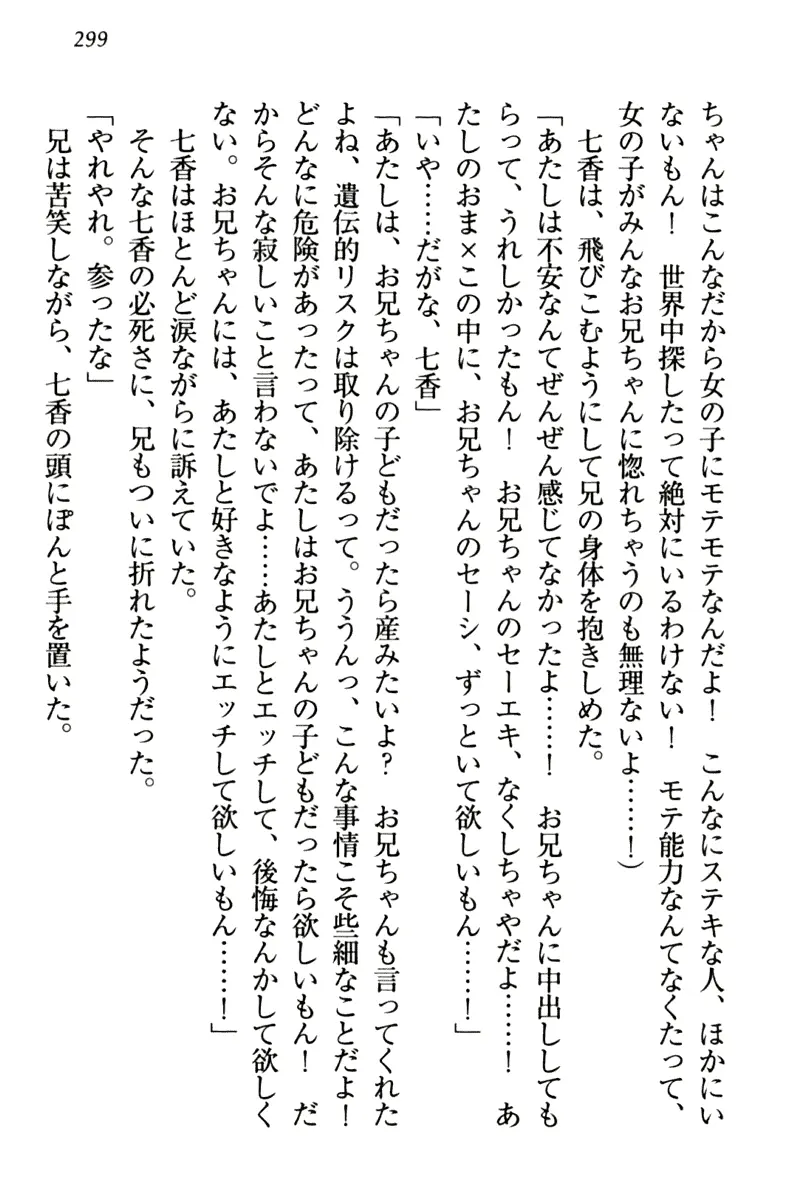 299
ちゃんはこんなだから女の子にモテモテなんだよ！　こんなにステキな人、ほかにい
ないもん！　世界中探したって絶対にいるわけない！　モテ能力なんてなくたって、
女の子がみんなお兄ちゃんに惚れちゃうのも無理ないよ……！）
七香は、飛びこむようにして兄の身体を抱きしめた。
「あたしは不安なんてぜんぜん感じてなかったよ……！　お兄ちゃんに中出ししても
らって、うれしかったもん！　お兄ちゃんのセーエキ、なくしちゃやだよ……！　あ
たしのおま×この中に、お兄ちゃんのセーシ、ずっといて欲しいもん……！」
「いや……だがな、七香」
「あたしは、お兄ちゃんの子どもだったら産みたいよ？　お兄ちゃんも言ってくれた
よね、遺伝的リスクは取り除けるって。ううんっ、こんな事情こそ些細なことだよ！
どんなに危険があったって、あたしはお兄ちゃんの子どもだったら欲しいもん！　だ
からそんな寂しいこと言わないでよ……あたしとエッチして、後悔なんかして欲しく
ない。お兄ちゃんには、あたしと好きなようにエッチして欲しいもん……！」
七香はほとんど涙ながらに訴えていた。
そんな七香の必死さに、兄もついに折れたようだった。
「やれやれ。参ったな」
兄は苦笑しながら、七香の頭にぽんと手を置いた。